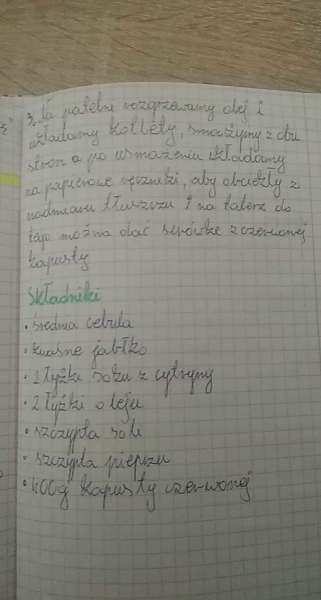 3. Na patelni rozgrzewamy olej i
wkładamy kotlety, smażymy z obu
stron a po usmażeniu wkładamy
na papierowe ręczniki, aby obciekły z
nadmiaru tłuszczu i na talerz do
tego można dać surówkę z czerwonej
kapusty
Składniki
• średnia cebula
• kwaśne jabłko
• 1 łyżka soku z cytryny
• 2 łyżki oleju
• szczypta soli
• szczypta pieprzu
• 400g kapusty czerwonej